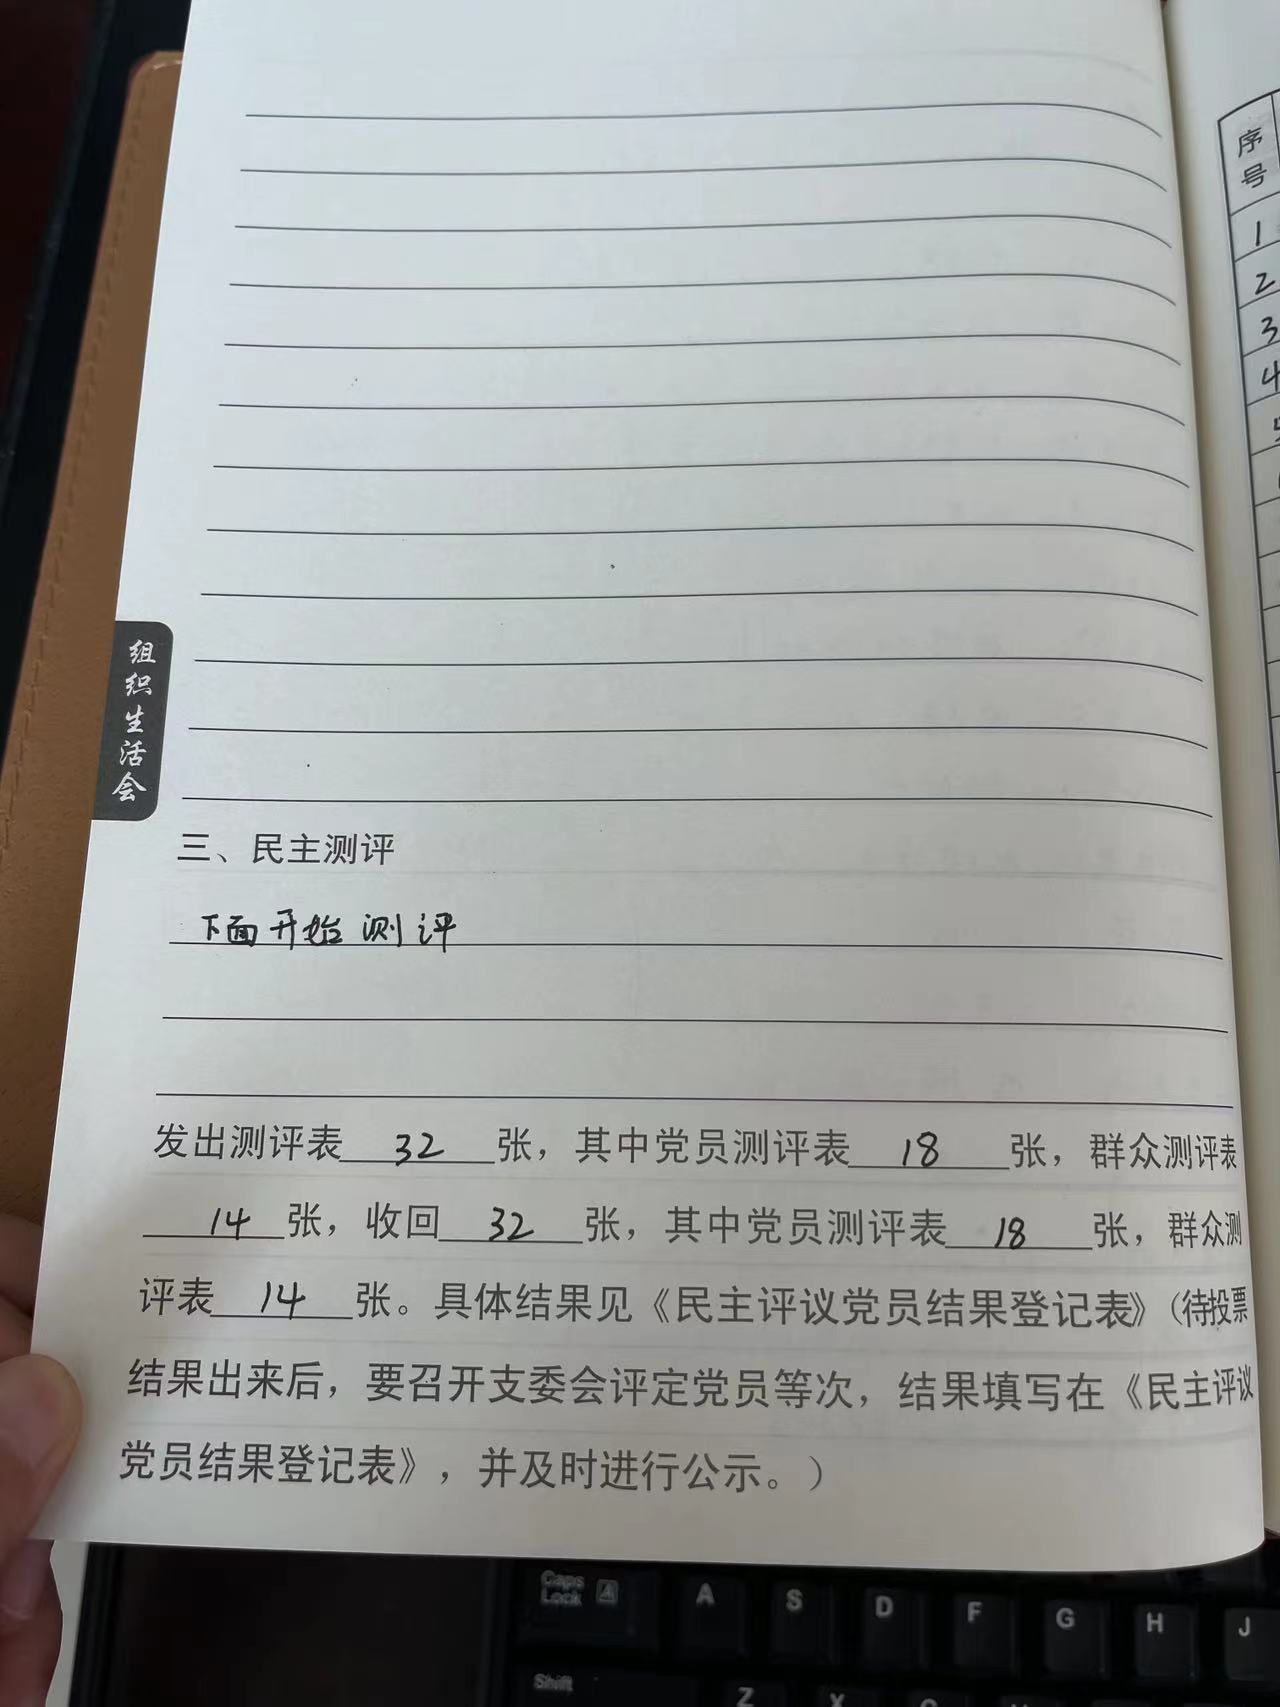 序号
1
2
3
4
组织生活会
三、民主测评
下面开始测评
发出测评表 32 张，其中党员测评表 18 张，群众测评表
14 张，收回 32 张，其中党员测评表 18 张，群众测
评表 14 张。具体结果见《民主评议党员结果登记表》（待投票
结果出来后，要召开支委会评定党员等次，结果填写在《民主评议
党员结果登记表》，并及时进行公示。）
Caps Lock A A S D F G H J
Shift Z X